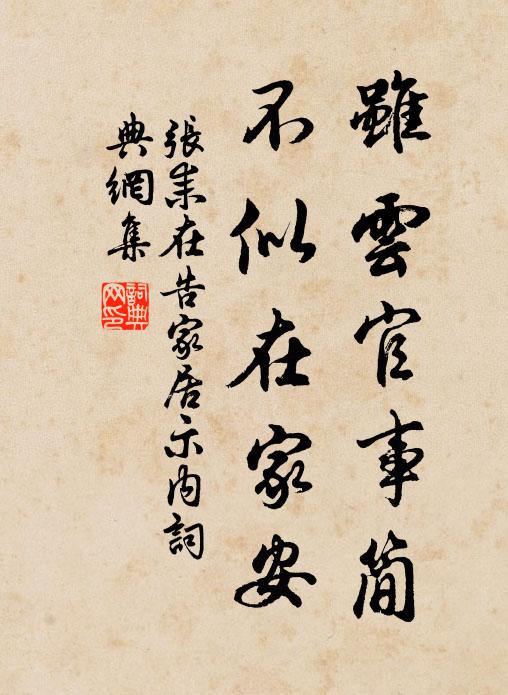 雖雲官事簡
不似在家安
張耒在告家居示內詞
典網集
詞典網印